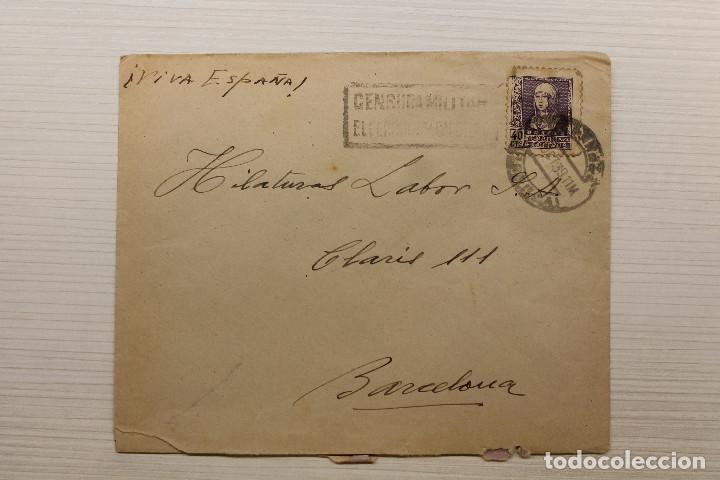 ¡VIVA ESPAÑA!
CENSURA MILITAR
40
Hilaturas Labor S.A.
Claris 111
Barcelona
todocoleccion.net